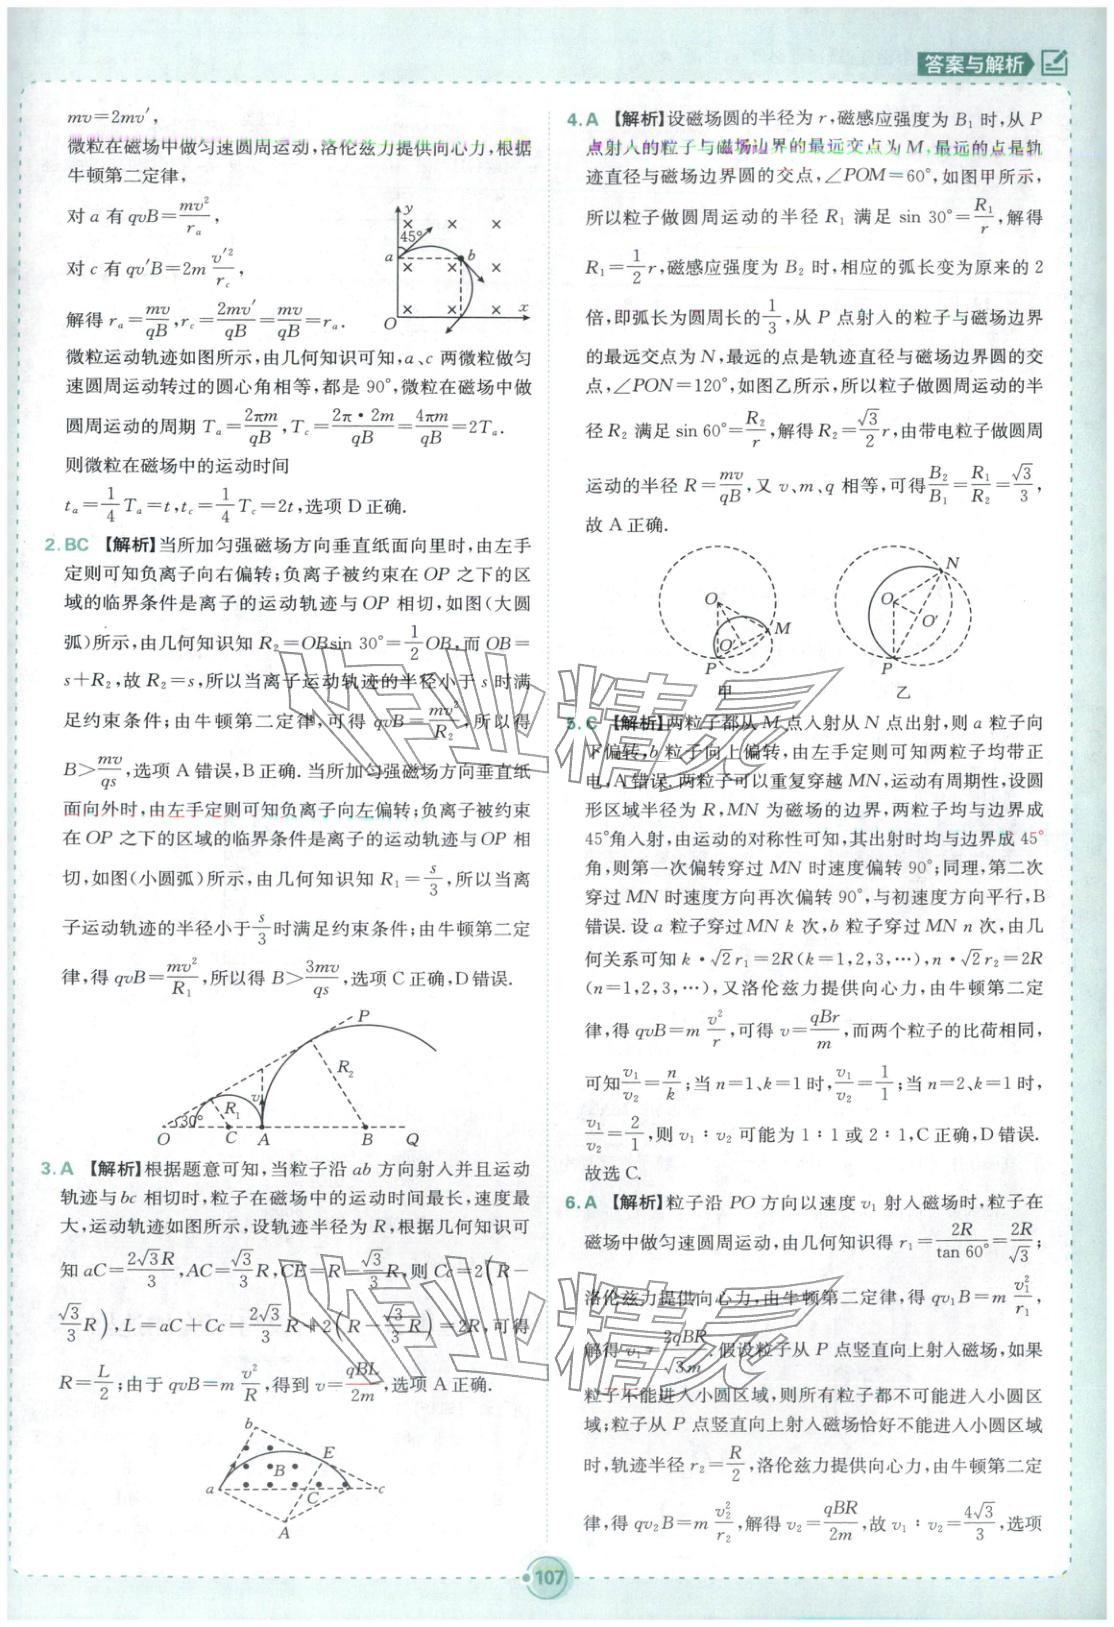 答案与解析
mv=2mv′,
微粒在磁场中做匀速圆周运动,洛伦兹力提供向心力,根据
牛顿第二定律,
对 a 有 qvB=mv²/rₐ,
对 c 有 qv′B=2m v′²/r꜀,
解得 rₐ=mv/qB,r꜀=2mv′/qB=mv/qB=rₐ.
y
45°
a
b
O
x
微粒运动轨迹如图所示,由几何知识可知,a、c 两微粒做匀
速圆周运动转过的圆心角相等,都是 90°,微粒在磁场中做
圆周运动的周期 Tₐ=2πm/qB,T꜀=2π·2m/qB=4πm/qB=2Tₐ.
则微粒在磁场中的运动时间
tₐ=1/4 Tₐ=t,t꜀=1/4 T꜀=2t,选项 D 正确.
2. BC 【解析】当所加匀强磁场方向垂直纸面向里时,由左手
定则可知负离子向右偏转;负离子被约束在 OP 之下的区
域的临界条件是离子的运动轨迹与 OP 相切,如图(大圆
弧)所示,由几何知识知 R₂=OBsin 30°=1/2 OB,而 OB=
s+R₂,故 R₂=s,所以当离子运动轨迹的半径小于 s 时满
足约束条件;由牛顿第二定律,可得 qvB=mv²/R₂,所以得
B>mv/qs,选项 A 错误,B 正确. 当所加匀强磁场方向垂直纸
面向外时,由左手定则可知负离子向左偏转;负离子被约束
在 OP 之下的区域的临界条件是离子的运动轨迹与 OP 相
切,如图(小圆弧)所示,由几何知识知 R₁=s/3,所以当离
子运动轨迹的半径小于 s/3 时满足约束条件;由牛顿第二定
律,得 qvB=mv²/R₁,所以得 B>3mv/qs,选项 C 正确,D 错误.
P
R₂
v
R₁
30°
O C A B Q
3. A 【解析】根据题意可知,当粒子沿 ab 方向射入并且运动
轨迹与 bc 相切时,粒子在磁场中的运动时间最长,速度最
大,运动轨迹如图所示,设轨迹半径为 R,根据几何知识可
知 aC=2√3R/3,AC=√3/3 R,CE=R-√3/3 R,则 Cc=2(R-
√3/3 R),L=aC+Cc=2√3/3 R+2(R-√3/3 R)=2R,可得
R=L/2;由于 qvB=m v²/R,得到 v=qBL/2m,选项 A 正确.
b
E
B
a
C
c
A
4. A 【解析】设磁场圆的半径为 r,磁感应强度为 B₁ 时,从 P
点射入的粒子与磁场边界的最远交点为 M,最远的点是轨
迹直径与磁场边界圆的交点,∠POM=60°,如图甲所示,
所以粒子做圆周运动的半径 R₁ 满足 sin 30°=R₁/r,解得
R₁=1/2 r,磁感应强度为 B₂ 时,相应的弧长变为原来的 2
倍,即弧长为圆周长的1/3,从 P 点射入的粒子与磁场边界
的最远交点为 N,最远的点是轨迹直径与磁场边界圆的交
点,∠PON=120°,如图乙所示,所以粒子做圆周运动的半
径 R₂ 满足 sin 60°=R₂/r,解得 R₂=√3/2 r,由带电粒子做圆周
运动的半径 R=mv/qB,又 v、m、q 相等,可得B₂/B₁=R₁/R₂=√3/3,
故 A 正确.
O
O′
M
P
甲
N
O
O′
P
乙
5. C 【解析】两粒子都从 M 点入射从 N 点出射,则 a 粒子向
下偏转,b 粒子向上偏转,由左手定则可知两粒子均带正
电,A 错误. 两粒子可以重复穿越 MN,运动有周期性,设圆
形区域半径为 R,MN 为磁场的边界,两粒子均与边界成
45°角入射,由运动的对称性可知,其出射时均与边界成 45°
角,则第一次偏转穿过 MN 时速度偏转 90°;同理,第二次
穿过 MN 时速度方向再次偏转 90°,与初速度方向平行,B
错误. 设 a 粒子穿过 MN k 次,b 粒子穿过 MN n 次,由几
何关系可知 k·√2r₁=2R(k=1,2,3,…),n·√2r₂=2R
(n=1,2,3,…),又洛伦兹力提供向心力,由牛顿第二定
律,得 qvB=m v²/r,可得 v=qBr/m,而两个粒子的比荷相同,
可知v₁/v₂=n/k;当 n=1、k=1 时,v₁/v₂=1/1;当 n=2、k=1 时,
v₁/v₂=2/1,则 v₁∶v₂ 可能为 1∶1 或 2∶1,C 正确,D 错误.
故选 C.
6. A 【解析】粒子沿 PO 方向以速度 v₁ 射入磁场时,粒子在
磁场中做匀速圆周运动,由几何知识得 r₁=2R/tan 60°=2R/√3;
洛伦兹力提供向心力,由牛顿第二定律,得 qv₁B=m v₁²/r₁,
解得 v₁=2qBR/√3m. 假设粒子从 P 点竖直向上射入磁场,如果
粒子不能进入小圆区域,则所有粒子都不可能进入小圆区
域;粒子从 P 点竖直向上射入磁场恰好不能进入小圆区域
时,轨迹半径 r₂=R/2,洛伦兹力提供向心力,由牛顿第二定
律,得 qv₂B=m v₂²/r₂,解得 v₂=qBR/2m,故 v₁∶v₂=4√3/3,选项
107
作业精灵
作业精灵